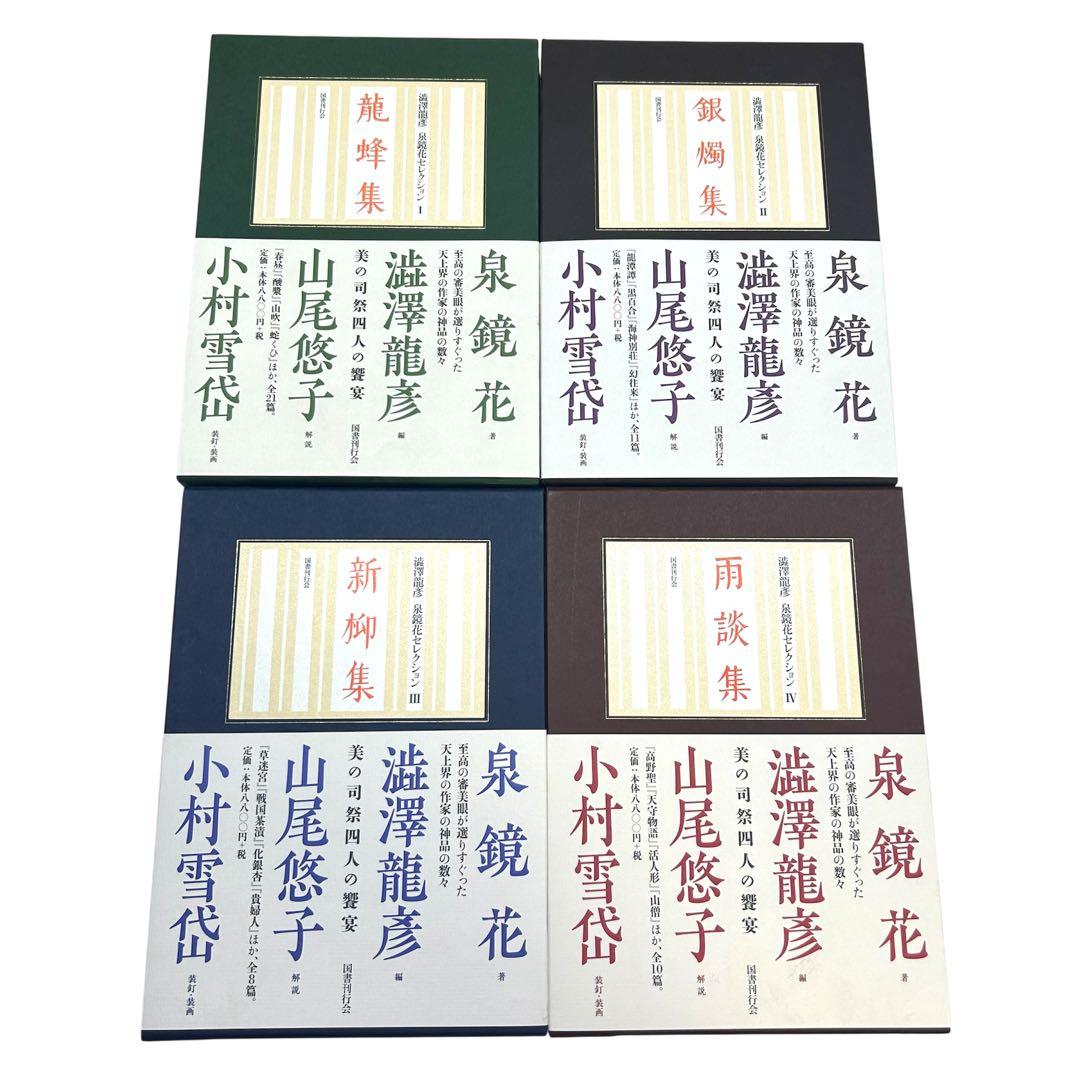 澁澤龍彦 泉鏡花セレクション I
龍蜂集
国書刊行会
泉鏡花 著
至高の審美眼が選りすぐった
天上界の作家の神品の数々
澁澤龍彦 編
美の司祭四人の饗宴
国書刊行会
山尾悠子 解説
『春昼』『酸漿』『山吹』『蛇くひ』ほか、全21篇。
定価:本体八八〇〇円+税
小村雪岱 装釘・装画
澁澤龍彦 泉鏡花セレクション II
銀燭集
国書刊行会
泉鏡花 著
至高の審美眼が選りすぐった
天上界の作家の神品の数々
澁澤龍彦 編
美の司祭四人の饗宴
国書刊行会
山尾悠子 解説
『龍潭譚』『黒百合』『海神別荘』『幻往来』ほか、全11篇。
定価:本体八八〇〇円+税
小村雪岱 装釘・装画
澁澤龍彦 泉鏡花セレクション III
新柳集
国書刊行会
泉鏡花 著
至高の審美眼が選りすぐった
天上界の作家の神品の数々
澁澤龍彦 編
美の司祭四人の饗宴
国書刊行会
山尾悠子 解説
『草迷宮』『戦国茶漬』『化銀杏』『貴婦人』ほか、全8篇。
定価:本体八八〇〇円+税
小村雪岱 装釘・装画
澁澤龍彦 泉鏡花セレクション IV
雨談集
国書刊行会
泉鏡花 著
至高の審美眼が選りすぐった
天上界の作家の神品の数々
澁澤龍彦 編
美の司祭四人の饗宴
国書刊行会
山尾悠子 解説
『高野聖』『天守物語』『活人形』『山僧』ほか、全10篇。
定価:本体八八〇〇円+税
小村雪岱 装釘・装画